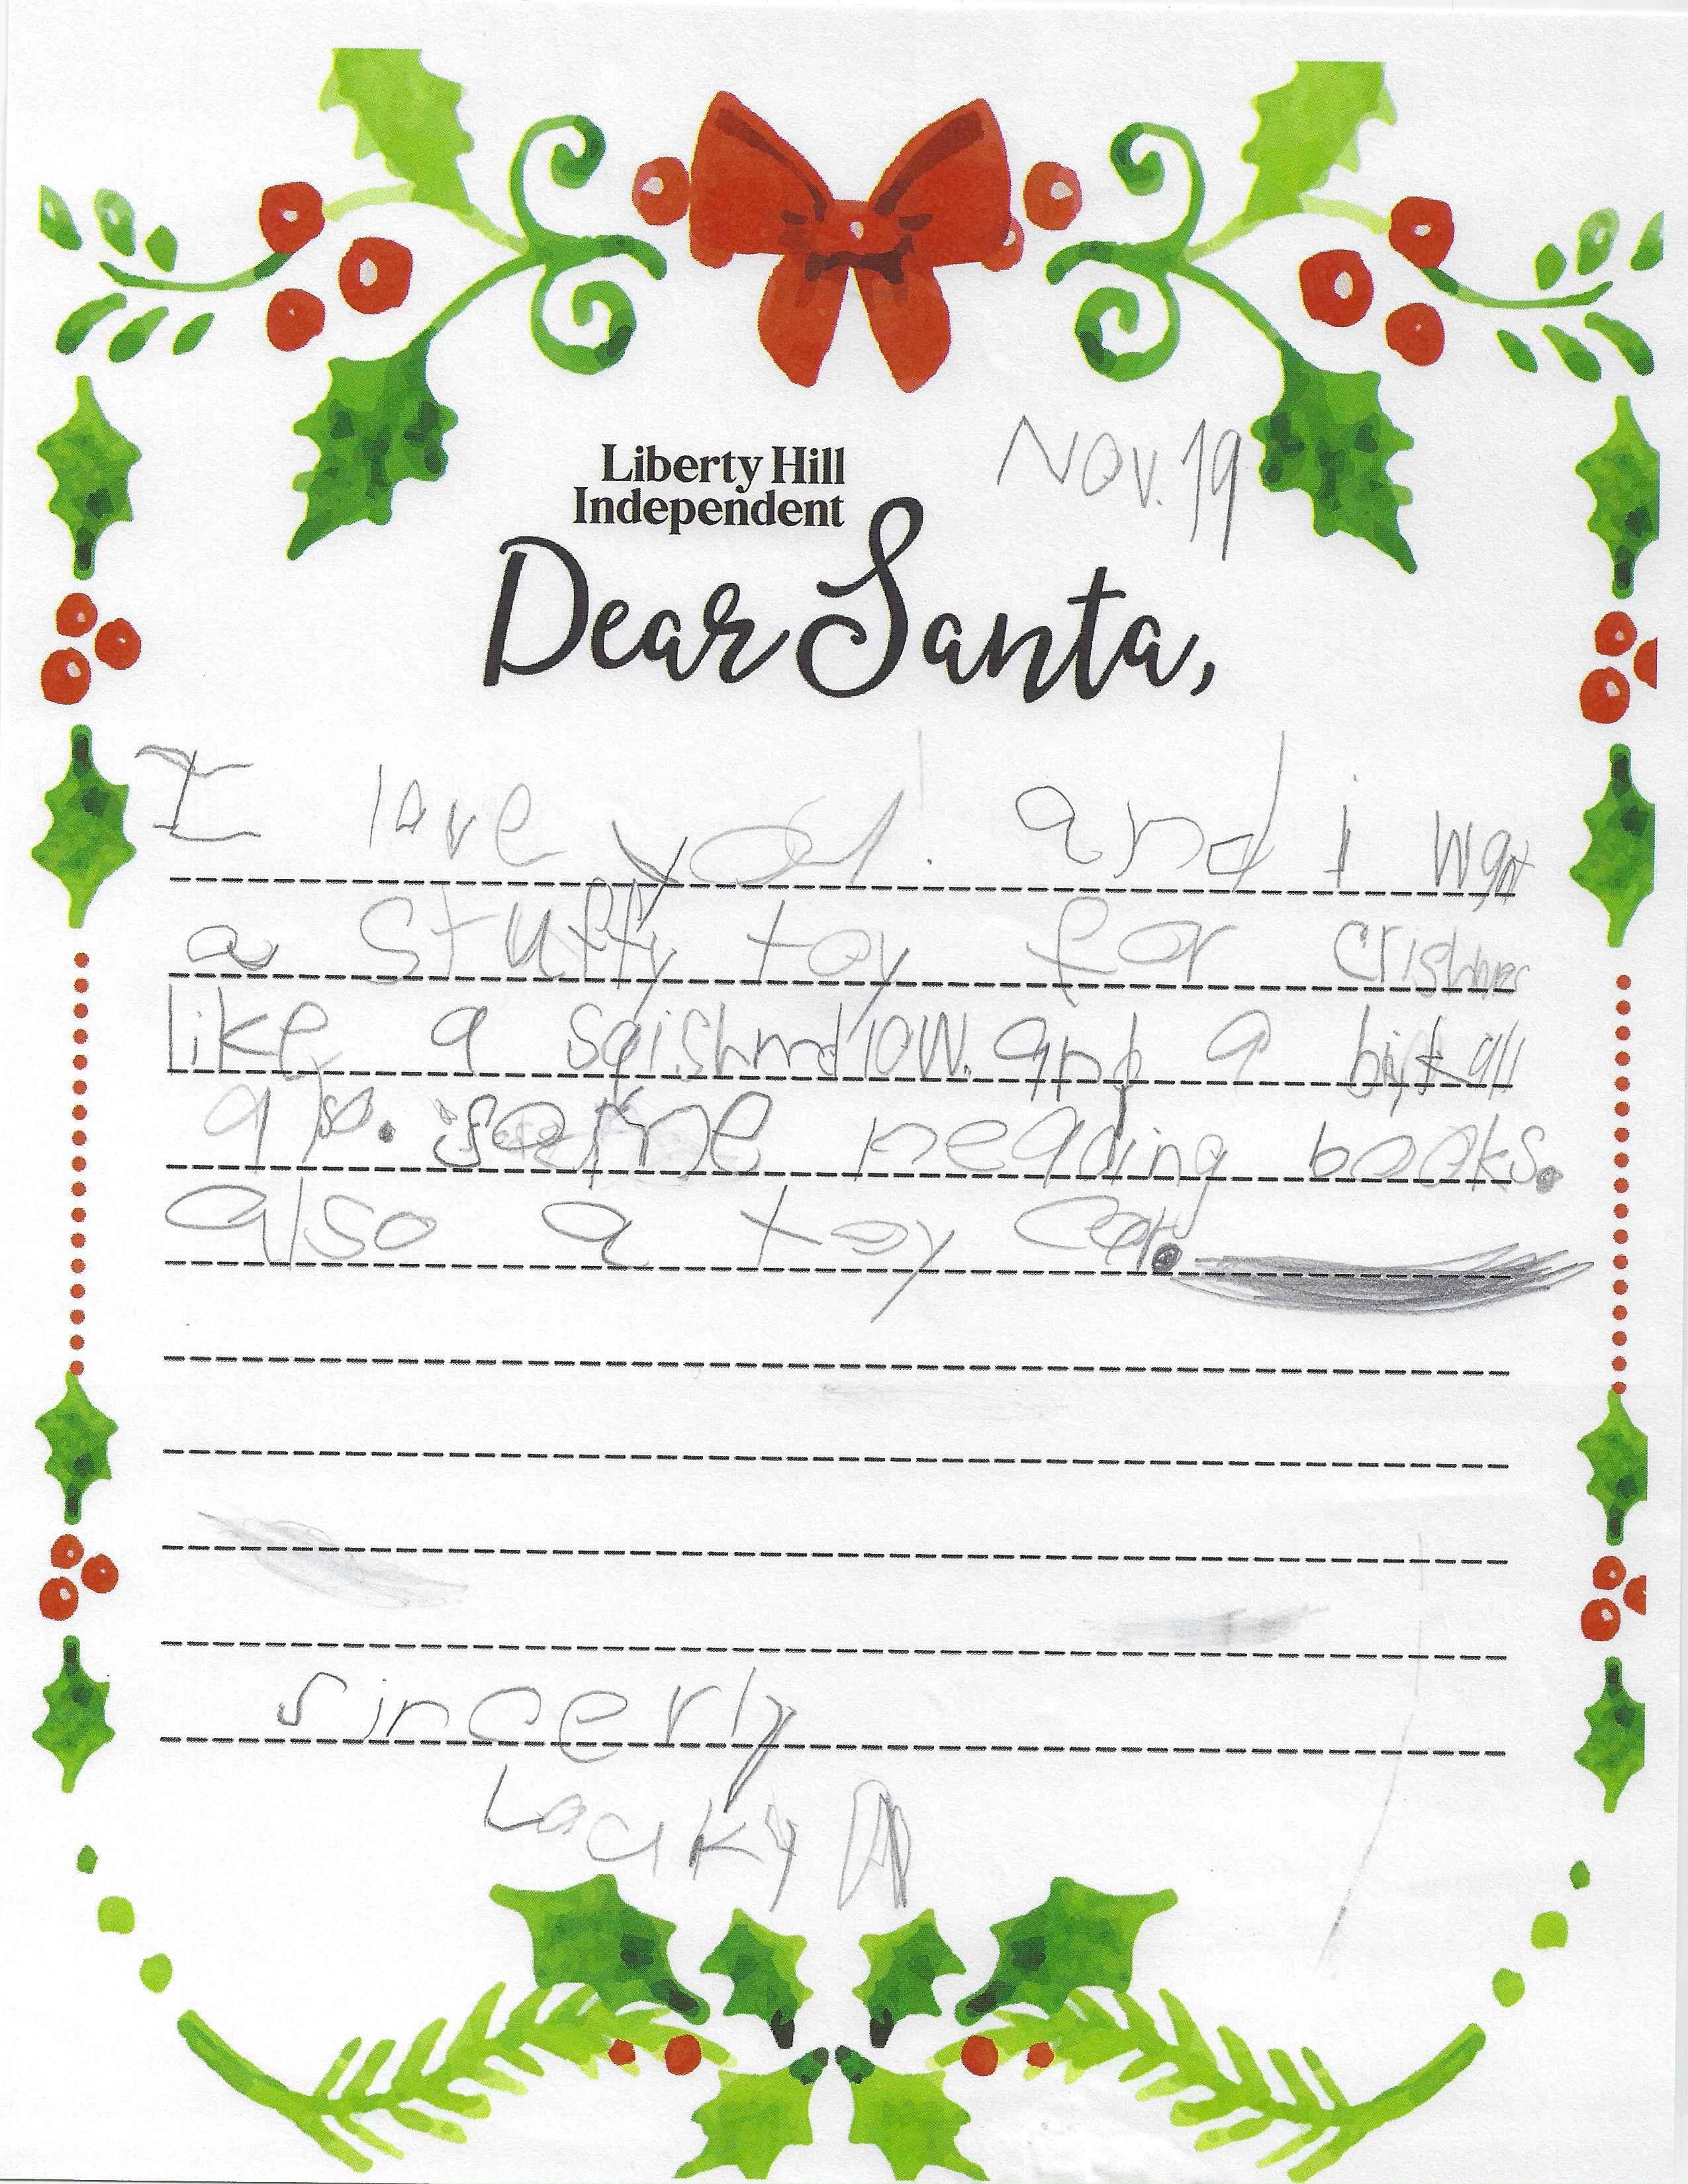 Liberty Hill
Independent
Nov. 19
Dear Santa,
I love you! and i wan
a stuffy toy for
like a sqishmdlow. and a
also. some reading books.
also a toy car.
sincerly
Lacuky A